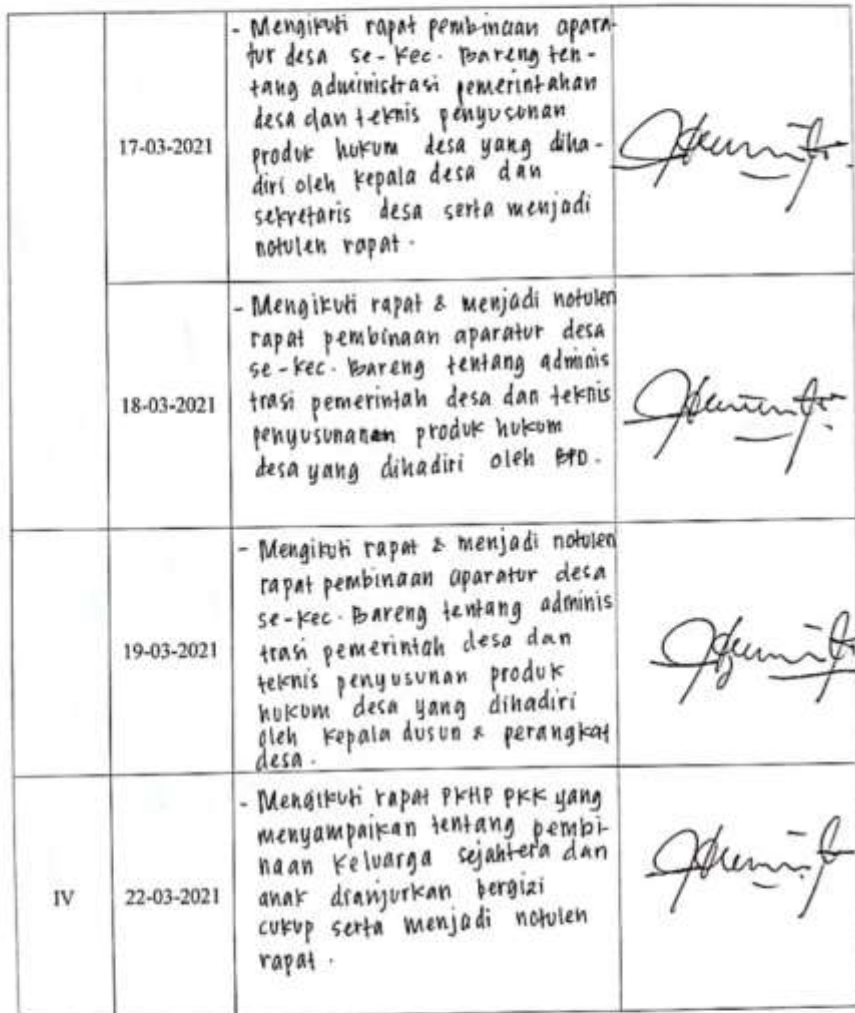 17-03-2021
- Mengikuti rapat pembinaan apara-
tur desa se-Kec. Bareng ten-
tang administrasi pemerintahan
desa dan teknis penyusunan
produk hukum desa yang diha-
diri oleh kepala desa dan
sekretaris desa serta menjadi
notulen rapat.
18-03-2021
- Mengikuti rapat & menjadi notulen
rapat pembinaan aparatur desa
se-Kec. Bareng tentang adminis
trasi pemerintah desa dan teknis
penyusunanan produk hukum
desa yang dihadiri oleh BPD.
19-03-2021
- Mengikuti rapat & menjadi notulen
rapat pembinaan aparatur desa
se-Kec. Bareng tentang adminis
trasi pemerintah desa dan
teknis penyusunan produk
hukum desa yang dihadiri
oleh kepala dusun & perangkat
desa.
IV
22-03-2021
- Mengikuti rapat PKHP PKK yang
menyampaikan tentang pembi-
naan keluarga sejahtera dan
anak dianjurkan bergizi
cukup serta menjadi notulen
rapat.